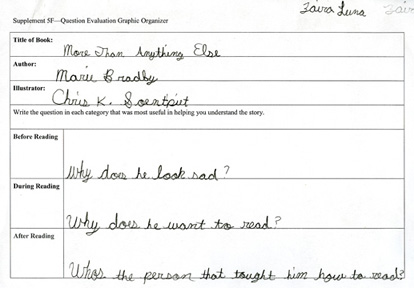 Zaira Luna
Supplement 5F—Question Evaluation Graphic Organizer
Title of Book:
More Than Anything Else
Author:
Marie Bradby
Illustrator:
Chris K. Soentpiet
Write the question in each category that was most useful in helping you understand the story.
Before Reading
Why does he look sad?
During Reading
Why does he want to read?
After Reading
Whos the person that tought him how to read?